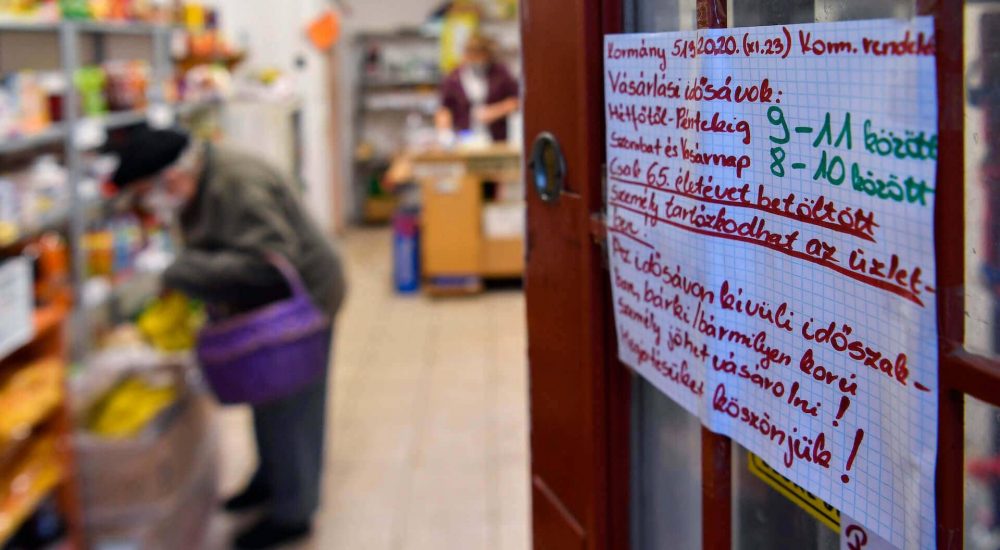 Kormány 519.2020. (XI.23) Korm. rendelet
Vásárlási idősávok:
Hétfőtől-Péntekig 9-11 között
Szombat és Vasárnap 8-10 között
Csak 65. életévet betöltött
személy tartózkodhat az üzlet-
ben.
Az idősávon kívüli időszak-
ban, bárki/bármilyen korú
személy jöhet vásárolni!
Megértésüket köszönjük!